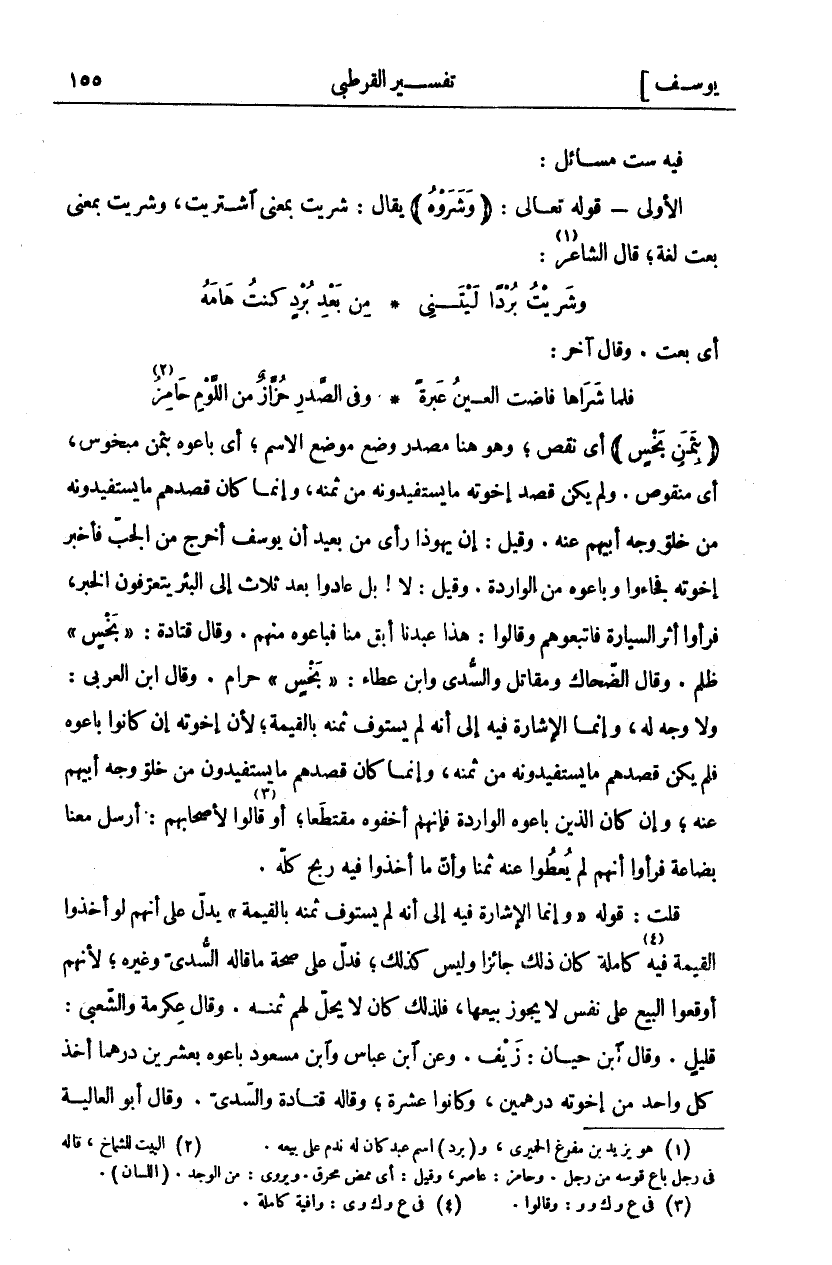 يوسف ] تفسير القرطبى ١٥٥
فيه ست مسائل :
الأولى — قوله تعالى : ﴿ وَشَرَوْهُ ﴾ يقال : شريت بمعنى ٱشتريت ، وشريت بمعنى
بعت لغة ؛ قال الشاعر (١) :
وشَرَيْتُ بُرْدًا لَيْتَنِى * مِن بَعْدِ بُرْدٍ كنتُ هَامَهْ
أى بعت . وقال آخر :
فلما شَرَاها فاضت العينُ عَبرةً * وفى الصَّدرِ حُزَّازٌ من اللَّوْمِ حَامِزُ (٢)
﴿ بِثَمَنٍ بَخْسٍ ﴾ أى نقص ؛ وهو هنا مصدر وضع موضع الاسم ؛ أى باعوه بثمن مبخوس ،
أى منقوص . ولم يكن قصد إخوته ما يستفيدونه من ثمنه ، وإنما كان قصدهم ما يستفيدونه
من خلق وجه أبيهم عنه . وقيل : إن يهوذا رأى من بعيد أن يوسف أخرج من الجبّ فأخبر
إخوته فجاءوا وباعوه من الواردة . وقيل : لا ! بل عادوا بعد ثلاث إلى البئر يتعرّفون الخبر ،
فرأوا أثر السيارة فاتبعوهم وقالوا : هذا عبدنا أبق منا فباعوه منهم . وقال قتادة : « بَخْسٍ »
ظلم . وقال الضّحاك ومقاتل والسُّدى وابن عطاء : « بَخْسٍ » حرام . وقال ابن العربى :
ولا وجه له ، وإنما الإشارة فيه إلى أنه لم يستوف ثمنه بالقيمة ؛ لأن إخوته إن كانوا باعوه
فلم يكن قصدهم ما يستفيدونه من ثمنه ، وإنما كان قصدهم ما يستفيدون من خلق وجه أبيهم
عنه ؛ وإن كان الذين باعوه الواردة فإنهم أخفوه مقتطَعا ؛ أو قالوا (٣) لأصحابهم : أرسل معنا
بضاعة فرأوا أنهم لم يُعطُوا عنه ثمنا وأنّ ما أخذوا فيه ربح كلّه .
قلت : قوله « وإنما الإشارة فيه إلى أنه لم يستوف ثمنه بالقيمة » يدلّ على أنهم لو أخذوا
القيمة فيه (٤) كاملة كان ذلك جائزا وليس كذلك ؛ فدلّ على صحة ما قاله السُّدىّ وغيره ؛ لأنهم
أوقعوا البيع على نفس لا يجوز بيعها ، فلذلك كان لا يحلّ لهم ثمنه . وقال عِكرمة والشّعبىّ :
قليلٍ . وقال ٱبن حيان : زَيْف . وعن ٱبن عباس وٱبن مسعود باعوه بعشرين درهما أخذ
كل واحد من إخوته درهمين ، وكانوا عشرة ؛ وقاله قتادة والسّدىّ . وقال أبو العالية
(١) هو يزيد بن مفرغ الحميرى ، و(برد) اسم عبد كان له ندم على بيعه . (٢) البيت للشماخ ، قاله
فى رجل باع قوسه من رجل . وحامز : عاصر ، وقيل : أى ممض محرق . ويروى : من الوجد . (اللسان) .
(٣) فى ع و ك و و : وقالوا . (٤) فى ع و ك و ى : وافية كاملة .